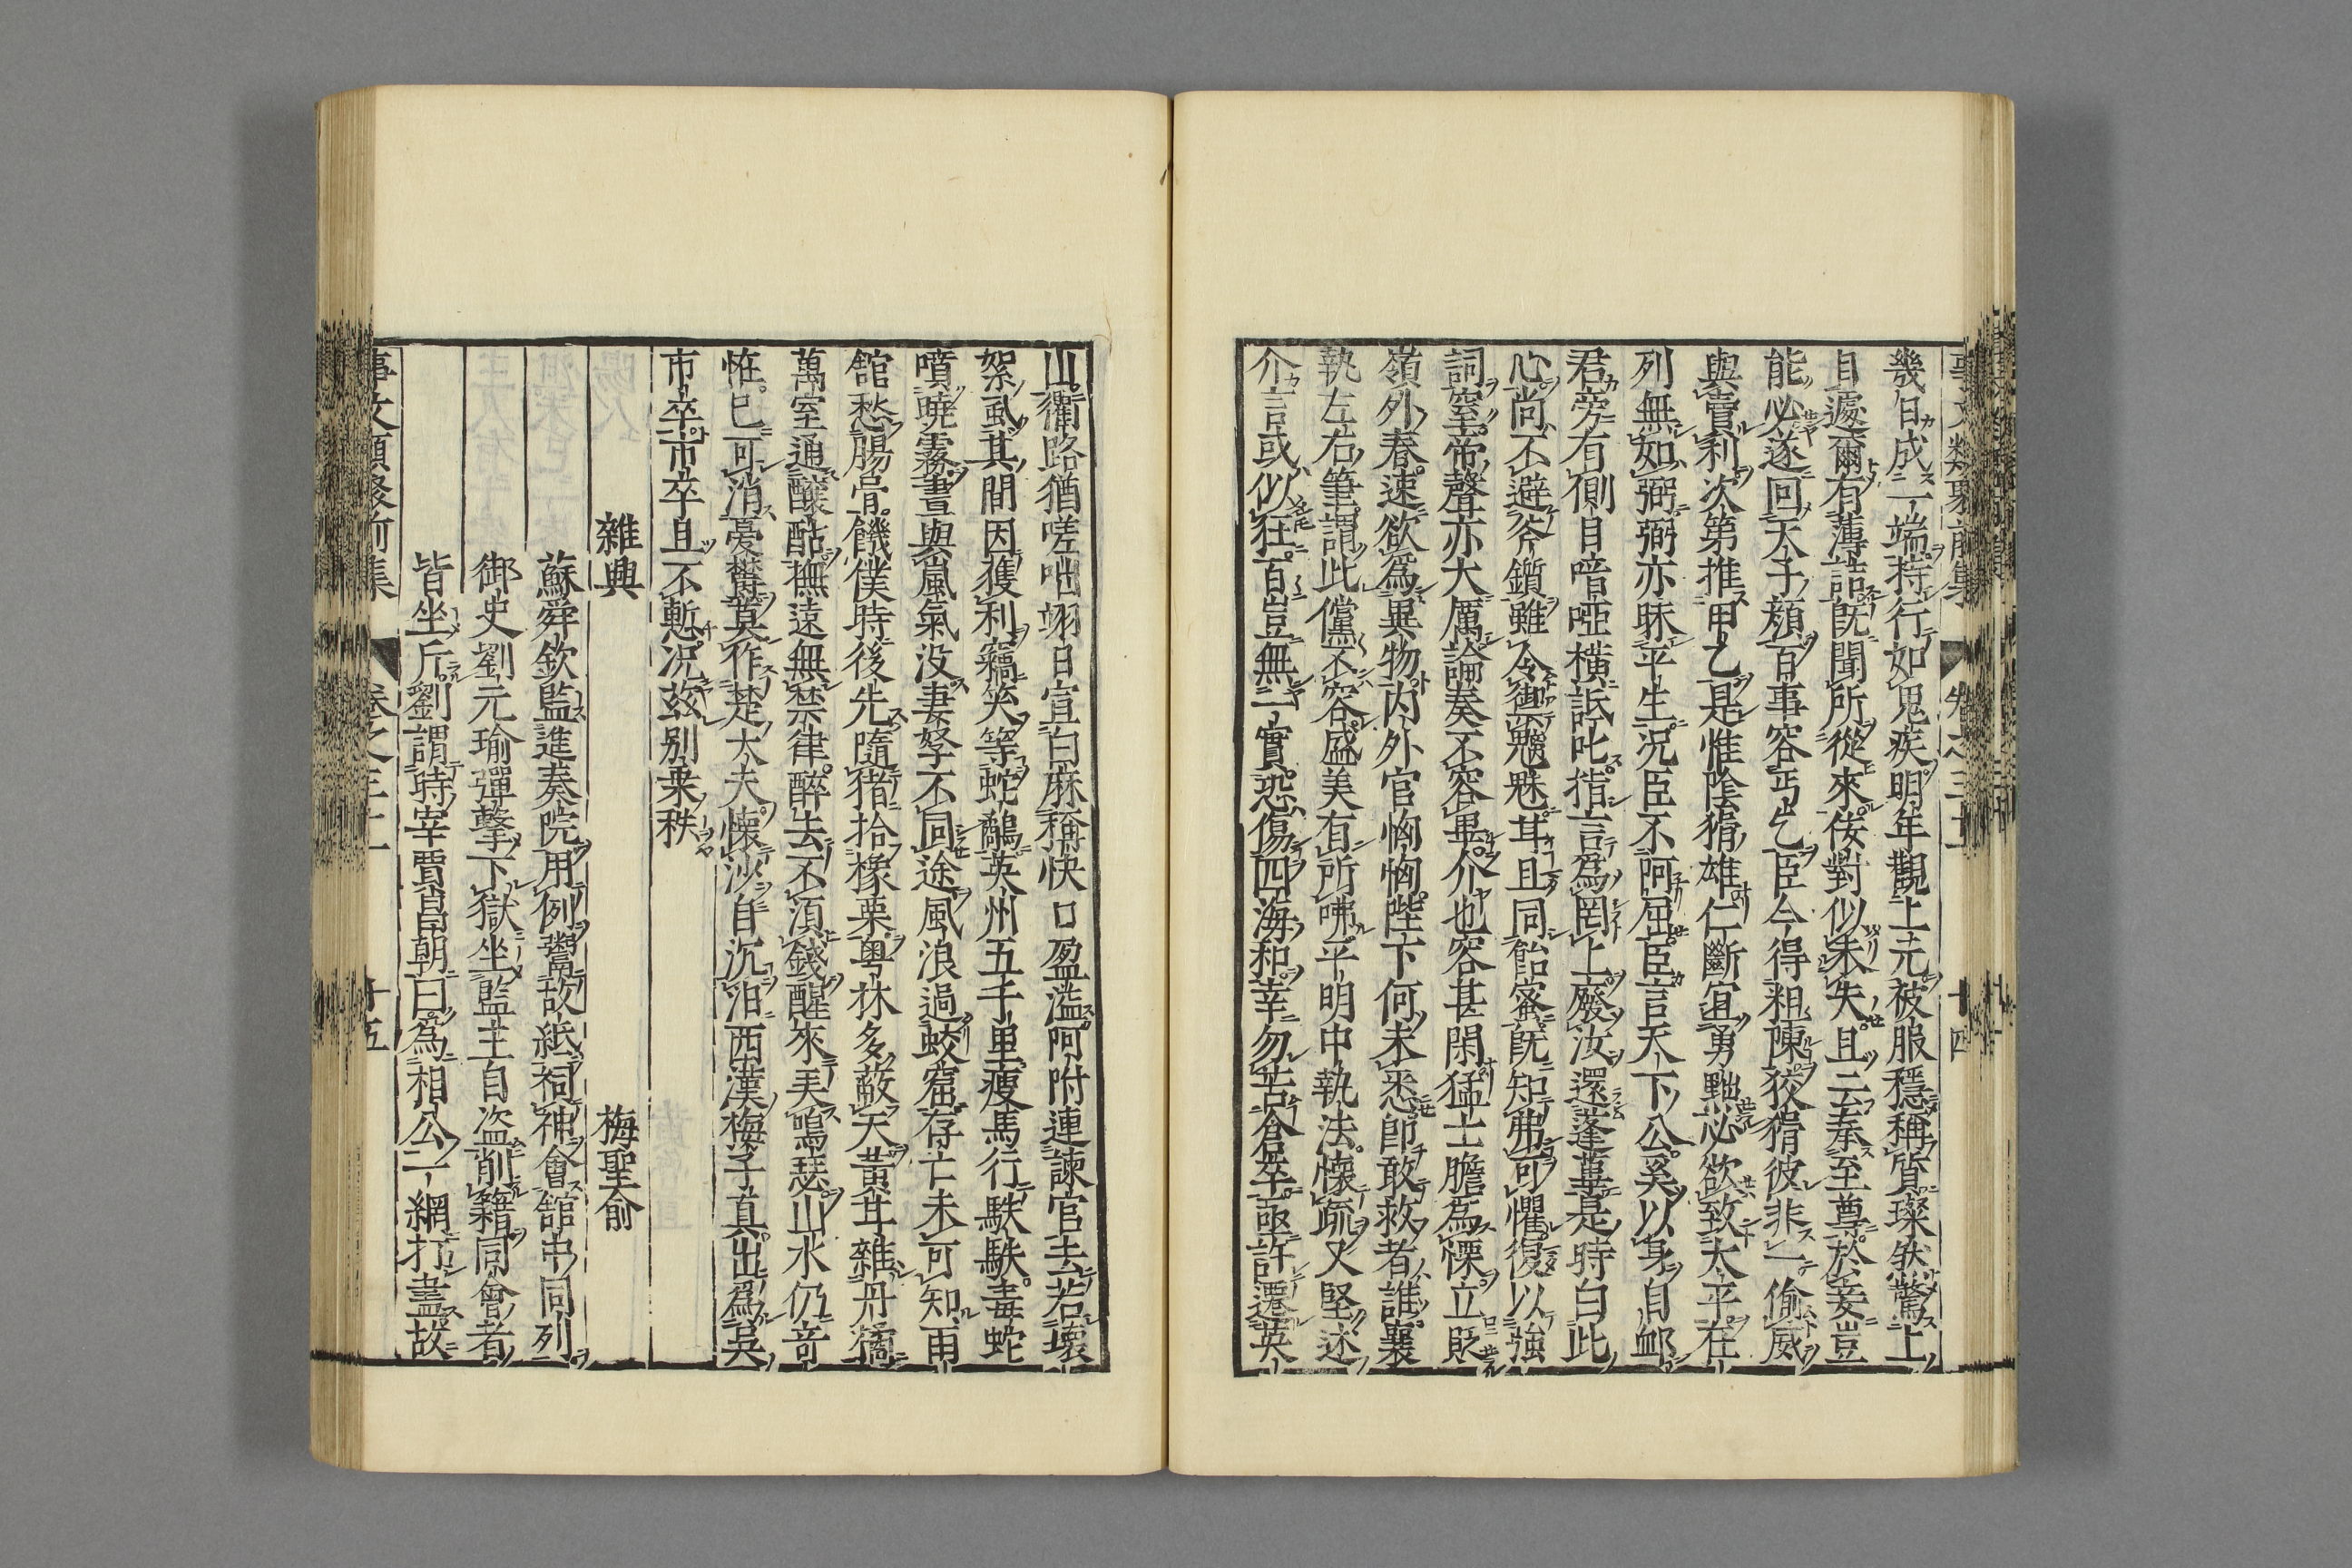 事文類聚前集 卷之三十 十四
幾日成一端持行如鬼疾明年觀上元被服穩稱質璨然驚上
目遽爾有薄詰旣聞所從來佞對似未失且云奉至尊於妾豈
能必遂回天子顔百事容丐乞臣今得粗陳狡猾彼非一偷威
與賣利次第推甲乙是惟陰猾雄仁斷宜勇黜必欲致太平在
列無如弼弼亦昧平生况臣不阿屈臣言天下公奚以身自衈
君旁有側目喑啞橫詆叱指言爲罔上廢汝還蓬蓽是時白此
心尚不避斧鑕雖令御魑魅甘且同飴蜜旣知弗可懼復以強
詞窒帝聲亦大厲論奏不容畢介也容甚閑猛士膽爲慄立貶
嶺外春速欲爲異物丙外官恟恟陛下何未悉卽敢救者誰襄
執左右筆謂此儻不容盛美有所咈平明中執法懷疏又堅述
介言或似狂百豈無一實恐傷四海和幸勿苦倉卒亟許遷英
山衢路猶嗟咄翊日宣白麻稱快口盈溢阿附連諫官去若壞
絮虱其間因獲利竊笑等蛇鷸英州五千里瘦馬行駃駃毒蛇
噴曉霧晝與嵐氣没妻孥不同途風浪過蛟窟存亡未可知雨
舘愁腸骨饑僕時後先隨猪拾橡栗粤林多蔽天黃甘雜丹橘
萬室通釀酤撫遠無禁律醉去不須錢醒來弄鳴瑟山水仍竒
恠已可消憂鬱莫作楚大夫懷沙自沉汨西漢梅子真出爲吳
市卒市卒且不慙况玆别乗秩
雜興 梅聖俞
蘇舜欽監進奏院用例鬻故紙祠神會舘中同列
御史劉元瑜彈擊下獄坐監主自盗削籍同會者
皆坐斥劉謂時宰賈昌朝曰爲相公一網打盡故
事文類聚前集 卷之三十 十五